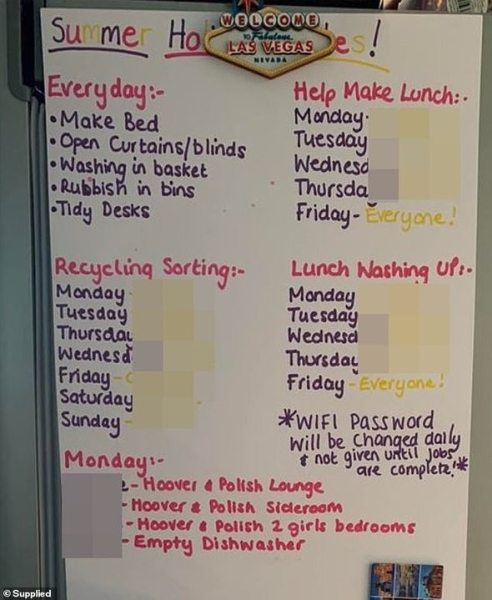 Summer Ho es!
WELCOME
TO Fabulous
LAS VEGAS
NEVADA
Everyday:-
• Make Bed
• Open Curtains/blinds
• Washing in basket
• Rubbish in bins
• Tidy Desks
Help Make Lunch:-
Monday-
Tuesday
Wednesd
Thursda
Friday - Everyone!
Recycling Sorting:-
Monday -
Tuesday
Thursday
Wednesd
Friday -
Saturday
Sunday -
Lunch Washing Up:-
Monday
Tuesday
Wednesd
Thursday
Friday - Everyone!
*WIFI PASSWORD
will be changed daily
& not given until jobs
are complete!*
Monday:-
- Hoover & Polish Lounge
- Hoover & Polish Sideroom
- Hoover & Polish 2 girls bedrooms
- Empty Dishwasher
© Supplied